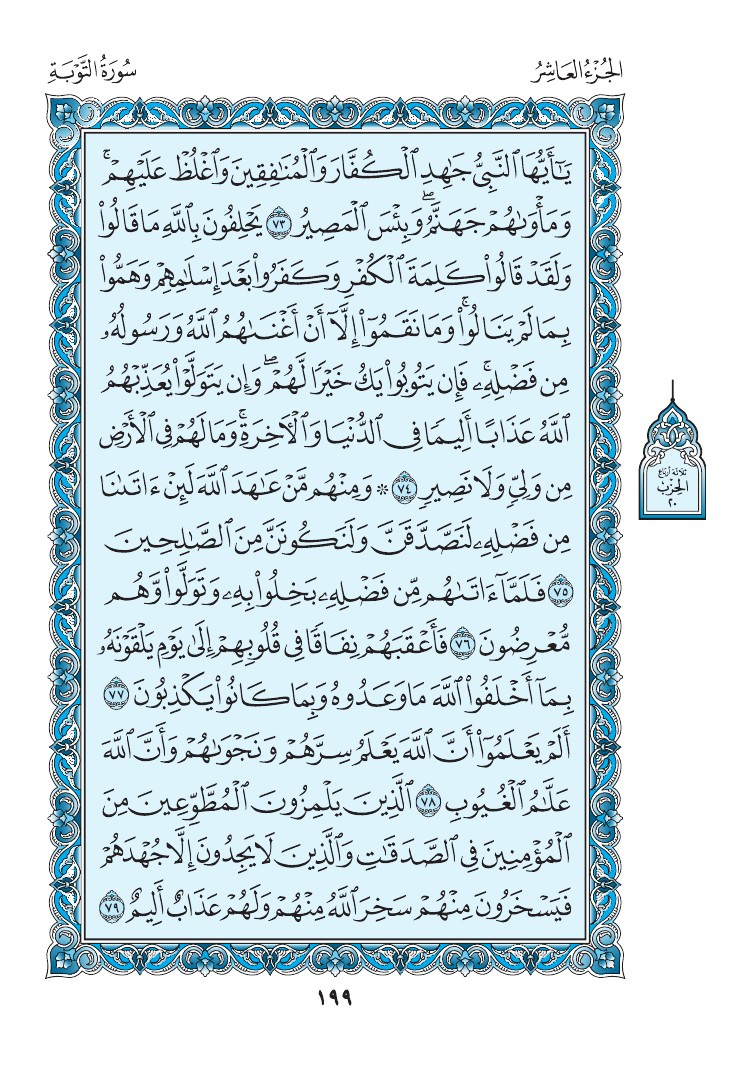 الجُزْءُ العَاشِرُ
سُورَةُ التَّوْبَةِ
يَٰٓأَيُّهَا ٱلنَّبِيُّ جَٰهِدِ ٱلۡكُفَّارَ وَٱلۡمُنَٰفِقِينَ وَٱغۡلُظۡ عَلَيۡهِمۡۚ
وَمَأۡوَىٰهُمۡ جَهَنَّمُۖ وَبِئۡسَ ٱلۡمَصِيرُ ٧٣ يَحۡلِفُونَ بِٱللَّهِ مَا قَالُواْ
وَلَقَدۡ قَالُواْ كَلِمَةَ ٱلۡكُفۡرِ وَكَفَرُواْ بَعۡدَ إِسۡلَٰمِهِمۡ وَهَمُّواْ
بِمَا لَمۡ يَنَالُواْۚ وَمَا نَقَمُوٓاْ إِلَّآ أَنۡ أَغۡنَىٰهُمُ ٱللَّهُ وَرَسُولُهُۥ
مِن فَضۡلِهِۦۚ فَإِن يَتُوبُواْ يَكُ خَيۡرٗا لَّهُمۡۖ وَإِن يَتَوَلَّوۡاْ يُعَذِّبۡهُمُ
ٱللَّهُ عَذَابًا أَلِيمٗا فِي ٱلدُّنۡيَا وَٱلۡأٓخِرَةِۚ وَمَا لَهُمۡ فِي ٱلۡأَرۡضِ
مِن وَلِيّٖ وَلَا نَصِيرٖ ٧٤ ۞ وَمِنۡهُم مَّنۡ عَٰهَدَ ٱللَّهَ لَئِنۡ ءَاتَىٰنَا
مِن فَضۡلِهِۦ لَنَصَّدَّقَنَّ وَلَنَكُونَنَّ مِنَ ٱلصَّٰلِحِينَ
٧٥ فَلَمَّآ ءَاتَىٰهُم مِّن فَضۡلِهِۦ بَخِلُواْ بِهِۦ وَتَوَلَّواْ وَّهُم
مُّعۡرِضُونَ ٧٦ فَأَعۡقَبَهُمۡ نِفَاقٗا فِي قُلُوبِهِمۡ إِلَىٰ يَوۡمِ يَلۡقَوۡنَهُۥ
بِمَآ أَخۡلَفُواْ ٱللَّهَ مَا وَعَدُوهُ وَبِمَا كَانُواْ يَكۡذِبُونَ ٧٧
أَلَمۡ يَعۡلَمُوٓاْ أَنَّ ٱللَّهَ يَعۡلَمُ سِرَّهُمۡ وَنَجۡوَىٰهُمۡ وَأَنَّ ٱللَّهَ
عَلَّٰمُ ٱلۡغُيُوبِ ٧٨ ٱلَّذِينَ يَلۡمِزُونَ ٱلۡمُطَّوِّعِينَ مِنَ
ٱلۡمُؤۡمِنِينَ فِي ٱلصَّدَقَٰتِ وَٱلَّذِينَ لَا يَجِدُونَ إِلَّا جُهۡدَهُمۡ
فَيَسۡخَرُونَ مِنۡهُمۡ سَخِرَ ٱللَّهُ مِنۡهُمۡ وَلَهُمۡ عَذَابٌ أَلِيمٌ ٧٩
ثلاثة أرباع
الحِزْب
٢٠
١٩٩